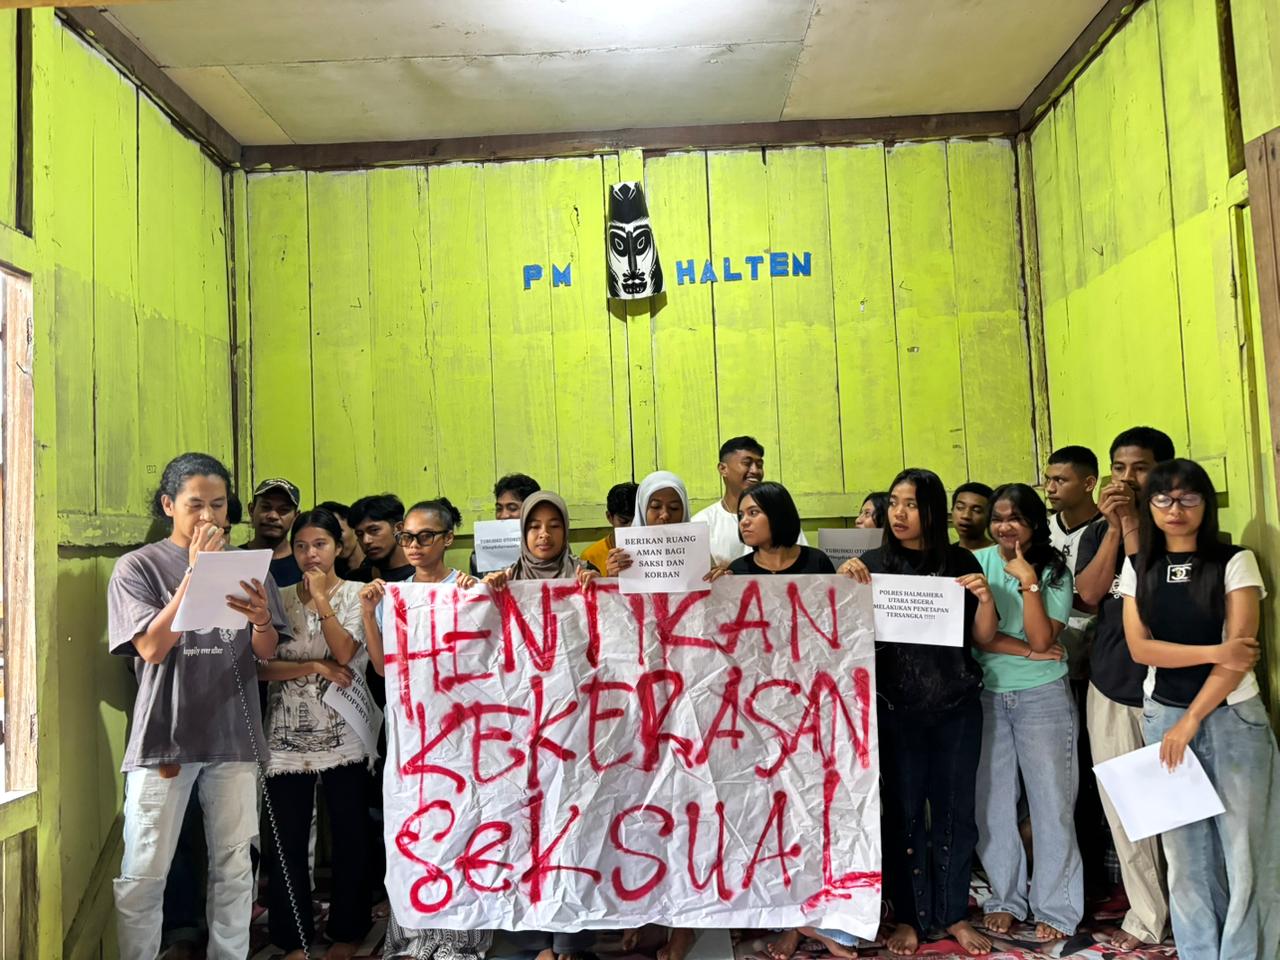 PM HALTEN
TUBUHKU OTORITASKU
BERIKAN RUANG
AMAN BAGI
SAKSI DAN
KORBAN
TUBUHKU
POLRES HALMAHERA
UTARA SEGERA
MELAKUKAN PENETAPAN
TERSANGKA !!!!!
happily ever after
BUKAN
PROPERTY
HENTIKAN
KEKERASAN
SeKSUAL